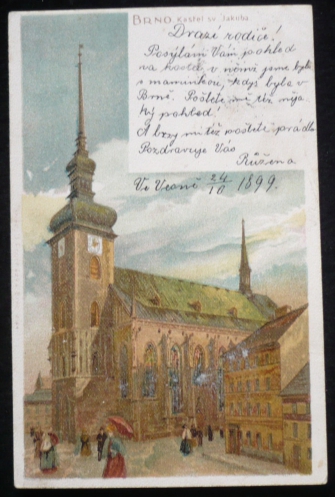 BRNO Kostel sv. Jakuba
Drazí rodiče!
Posýlám Vám pohled
na kostel v němž jsme byli
s maminkou, když byla v
Brně. Pošlete mi též nija-
ký pohled.
A brzy mi též pošlete prádlo
Pozdravuje Vás
Růžena.
Ve 24/10 1899.